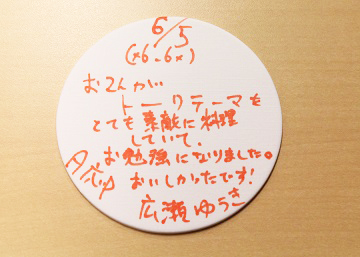 6/5
(*6-6*)
おこんがい
トークテーマも
とても素敵に料理
していて、
お勉強になりました。
おいしかったです!
広瀬ゆうき